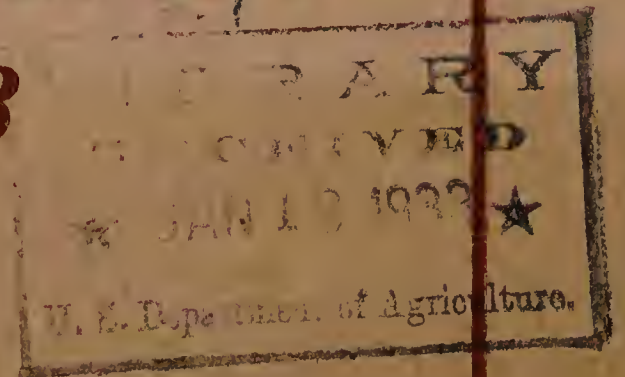 LIBRARY
RECEIVED
★ JAN 1 ★
U. S. Department of Agriculture.